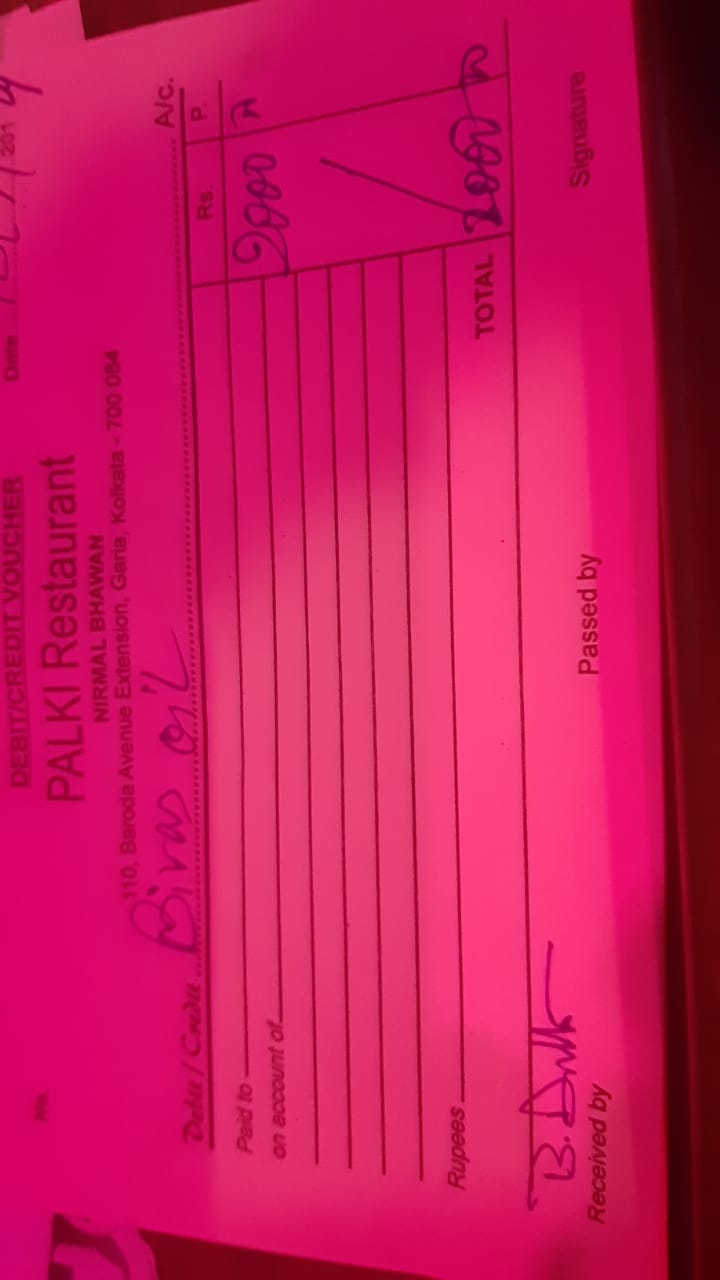 DEBIT/CREDIT VOUCHER
No. Date 201
PALKI Restaurant
NIRMAL BHAWAN
110, Baroda Avenue Extension, Garia, Kolkata - 700 084
Debit / Credit Biras oil A/c.
Rs. P.
Paid to 2000
on account of
Rupees TOTAL 2000
B.
Received by Passed by Signature